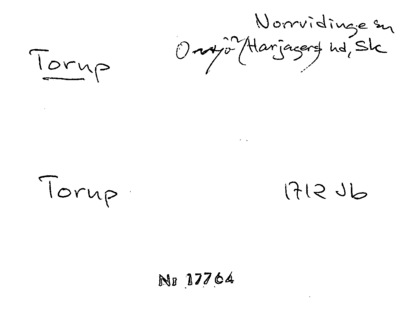 Norrvidinge sn
Torup
Onsjö/Harjagers hd, Sk
Torup
1712 Jb
Nr 17764